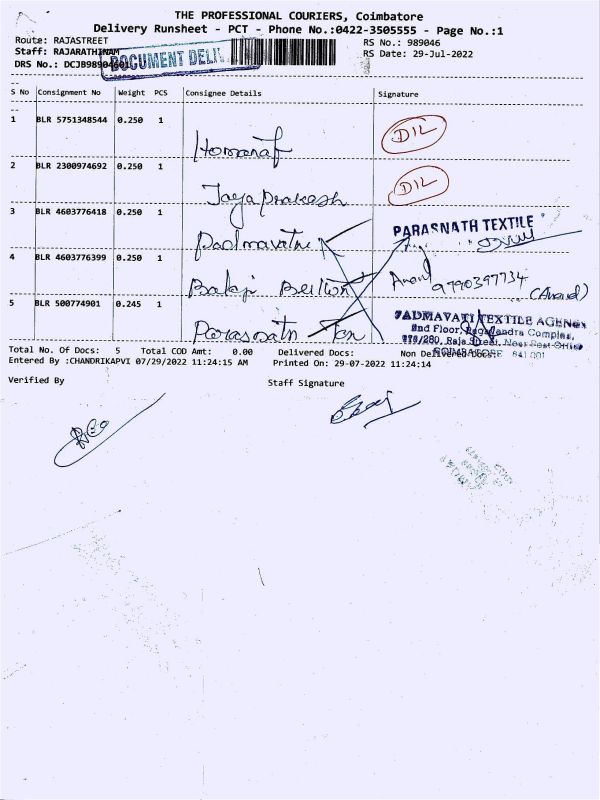 THE PROFESSIONAL COURIERS, Coimbatore
Delivery Runsheet - PCT - Phone No.:0422-3505555 - Page No.:1
Route: RAJASTREET RS No.: 989046
Staff: RAJARATHINAM RS Date: 29-Jul-2022
DRS No.: DCJB98904601
DOCUMENT DELI
S No Consignment No Weight PCS Consignee Details Signature
1 BLR 5751348544 0.250 1 DIL
2 BLR 2300974692 0.250 1 Jayaprakash DIL
3 BLR 4603776418 0.250 1 Padmavathi PARASNATH TEXTILE
4 BLR 4603776399 0.250 1 Balaji Anand 9790397734 (Anand)
5 BLR 500774901 0.245 1 Parasnath Tex PADMAVATI TEXTILE AGENCY
2nd Floor, Ragavendra Complex,
Raja Street, Near Post Office
COIMBATORE 641 001
Total No. Of Docs: 5 Total COD Amt: 0.00 Delivered Docs: Non Delivered Docs:
Entered By :CHANDRIKAPVI 07/29/2022 11:24:15 AM Printed On: 29-07-2022 11:24:14
Verified By Staff Signature